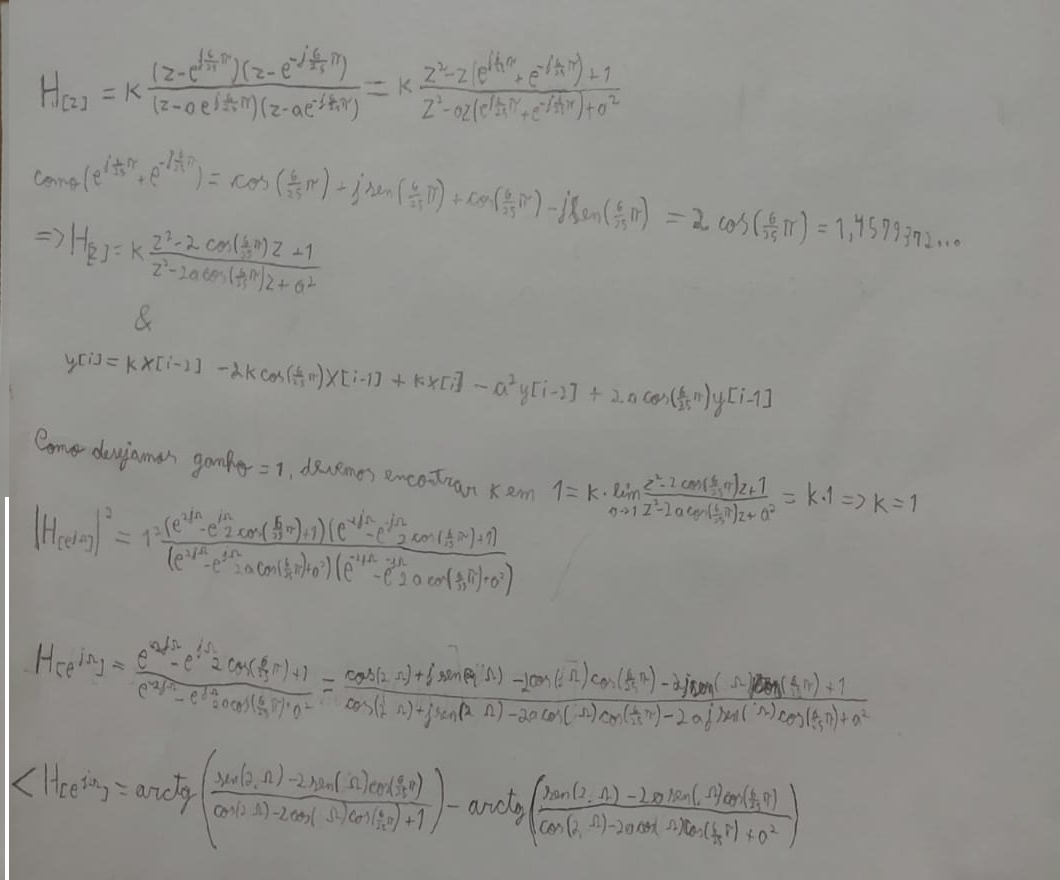 H[z] = K (z-e^{j6/25π})(z-e^{-j6/25π}) / (z-ae^{j6/25π})(z-ae^{-j6/25π}) = K z²-z(e^{j6/25π}+e^{-j6/25π})+1 / z²-az(e^{j6/25π}+e^{-j6/25π})+a²
como (e^{j6/25π}+e^{-j6/25π}) = cos(6/25π)+jsen(6/25π)+cos(6/25π)-jsen(6/25π) = 2cos(6/25π) = 1,4579372...
=> H[z] = K z²-2cos(6/25π)z+1 / z²-2acos(6/25π)z+a²
&
y[i] = Kx[i-2] -2Kcos(6/25π)x[i-1] + Kx[i] - a²y[i-2] + 2acos(6/25π)y[i-1]
Como desejamos ganho = 1, devemos encontrar K em 1 = K·lim a→1 z²-2cos(6/25π)z+1 / z²-2acos(6/25π)z+a² = K·1 => K=1
|H[e^{jΩ}]|² = 1² (e^{2jΩ}-e^{jΩ}2cos(6/25π)+1)(e^{-2jΩ}-e^{-jΩ}2cos(6/25π)+1) / (e^{2jΩ}-e^{jΩ}2acos(6/25π)+a²)(e^{-2jΩ}-e^{-jΩ}2acos(6/25π)+a²)
H[e^{jΩ}] = e^{2jΩ}-e^{jΩ}2cos(6/25π)+1 / e^{2jΩ}-e^{jΩ}2acos(6/25π)+a² = cos(2Ω)+jsen(2Ω)-2cos(Ω)cos(6/25π)-2jsen(Ω)cos(6/25π)+1 / cos(2Ω)+jsen(2Ω)-2acos(Ω)cos(6/25π)-2ajsen(Ω)cos(6/25π)+a²
<H[e^{jΩ}] = arctg(sen(2Ω)-2sen(Ω)cos(6/25π) / cos(2Ω)-2cos(Ω)cos(6/25π)+1) - arctg(sen(2Ω)-2asen(Ω)cos(6/25π) / cos(2Ω)-2acos(Ω)cos(6/25π)+a²)